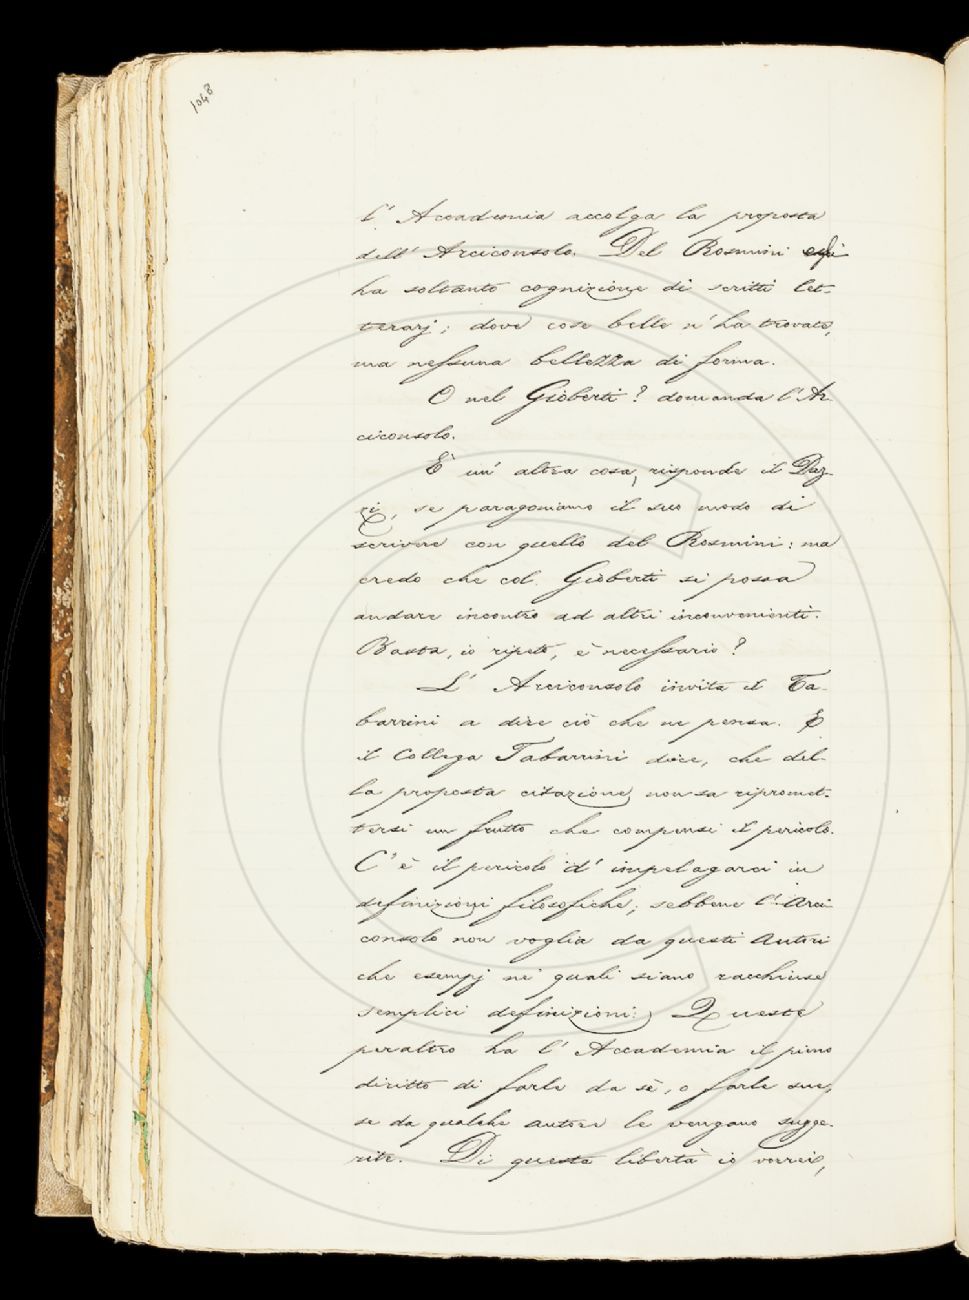 1048
l' Accademia accolga la proposta
dell' Arciconsolo. Del Rosmini egli
ha soltanto cognizione di scritti let-
terarj; dove cose belle n' ha trovato,
ma nessuna bellezza di forma.
E nel Gioberti? domanda l' Ar-
ciconsolo.
È un' altra cosa, risponde il Daz-
zi, se paragoniamo il suo modo di
scrivere con quello del Rosmini: ma
credo che col Gioberti si possa
andare incontro ad altri inconvenienti.
Basta, io ripeto, è necessario?
L' Arciconsolo invita il Ta-
barrini a dire ciò che ne pensa. E
il Collega Tabarrini dice, che del-
la proposta citazione non sa ripromet-
tersi un frutto che compensi il pericolo.
C' è il pericolo d' impelagarci in
definizioni filosofiche; sebbene l' Arci-
consolo non voglia da questi Autori
che esempj ne' quali siano racchiuse
semplici definizioni: Queste
peraltro ha l' Accademia il pieno
diritto di farle da sè, o farle sue,
se da qualche autore le vengano sugge-
rite. Di questa libertà io vorrei,